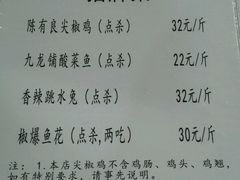 陈有良尖椒鸡（点杀） 32元/斤
九龙铺酸菜鱼（点杀） 22元/斤
香辣跳水兔（点杀） 32元/斤
椒爆鱼花（点杀,两吃） 30元/斤
注：1.本店尖椒鸡不含鸡肠、鸡头、鸡翅，
如有特别要求，请事先说明。